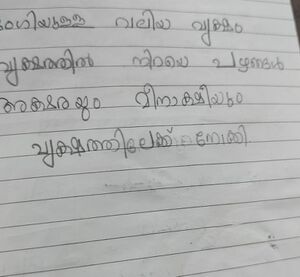 ഭംഗിയുള്ള വലിയ വൃക്ഷം
വൃക്ഷത്തിൽ നിറയെ പഴങ്ങൾ
അക്ഷരയും മീനാക്ഷിയും
വൃക്ഷത്തിലേക്ക് നോക്കി